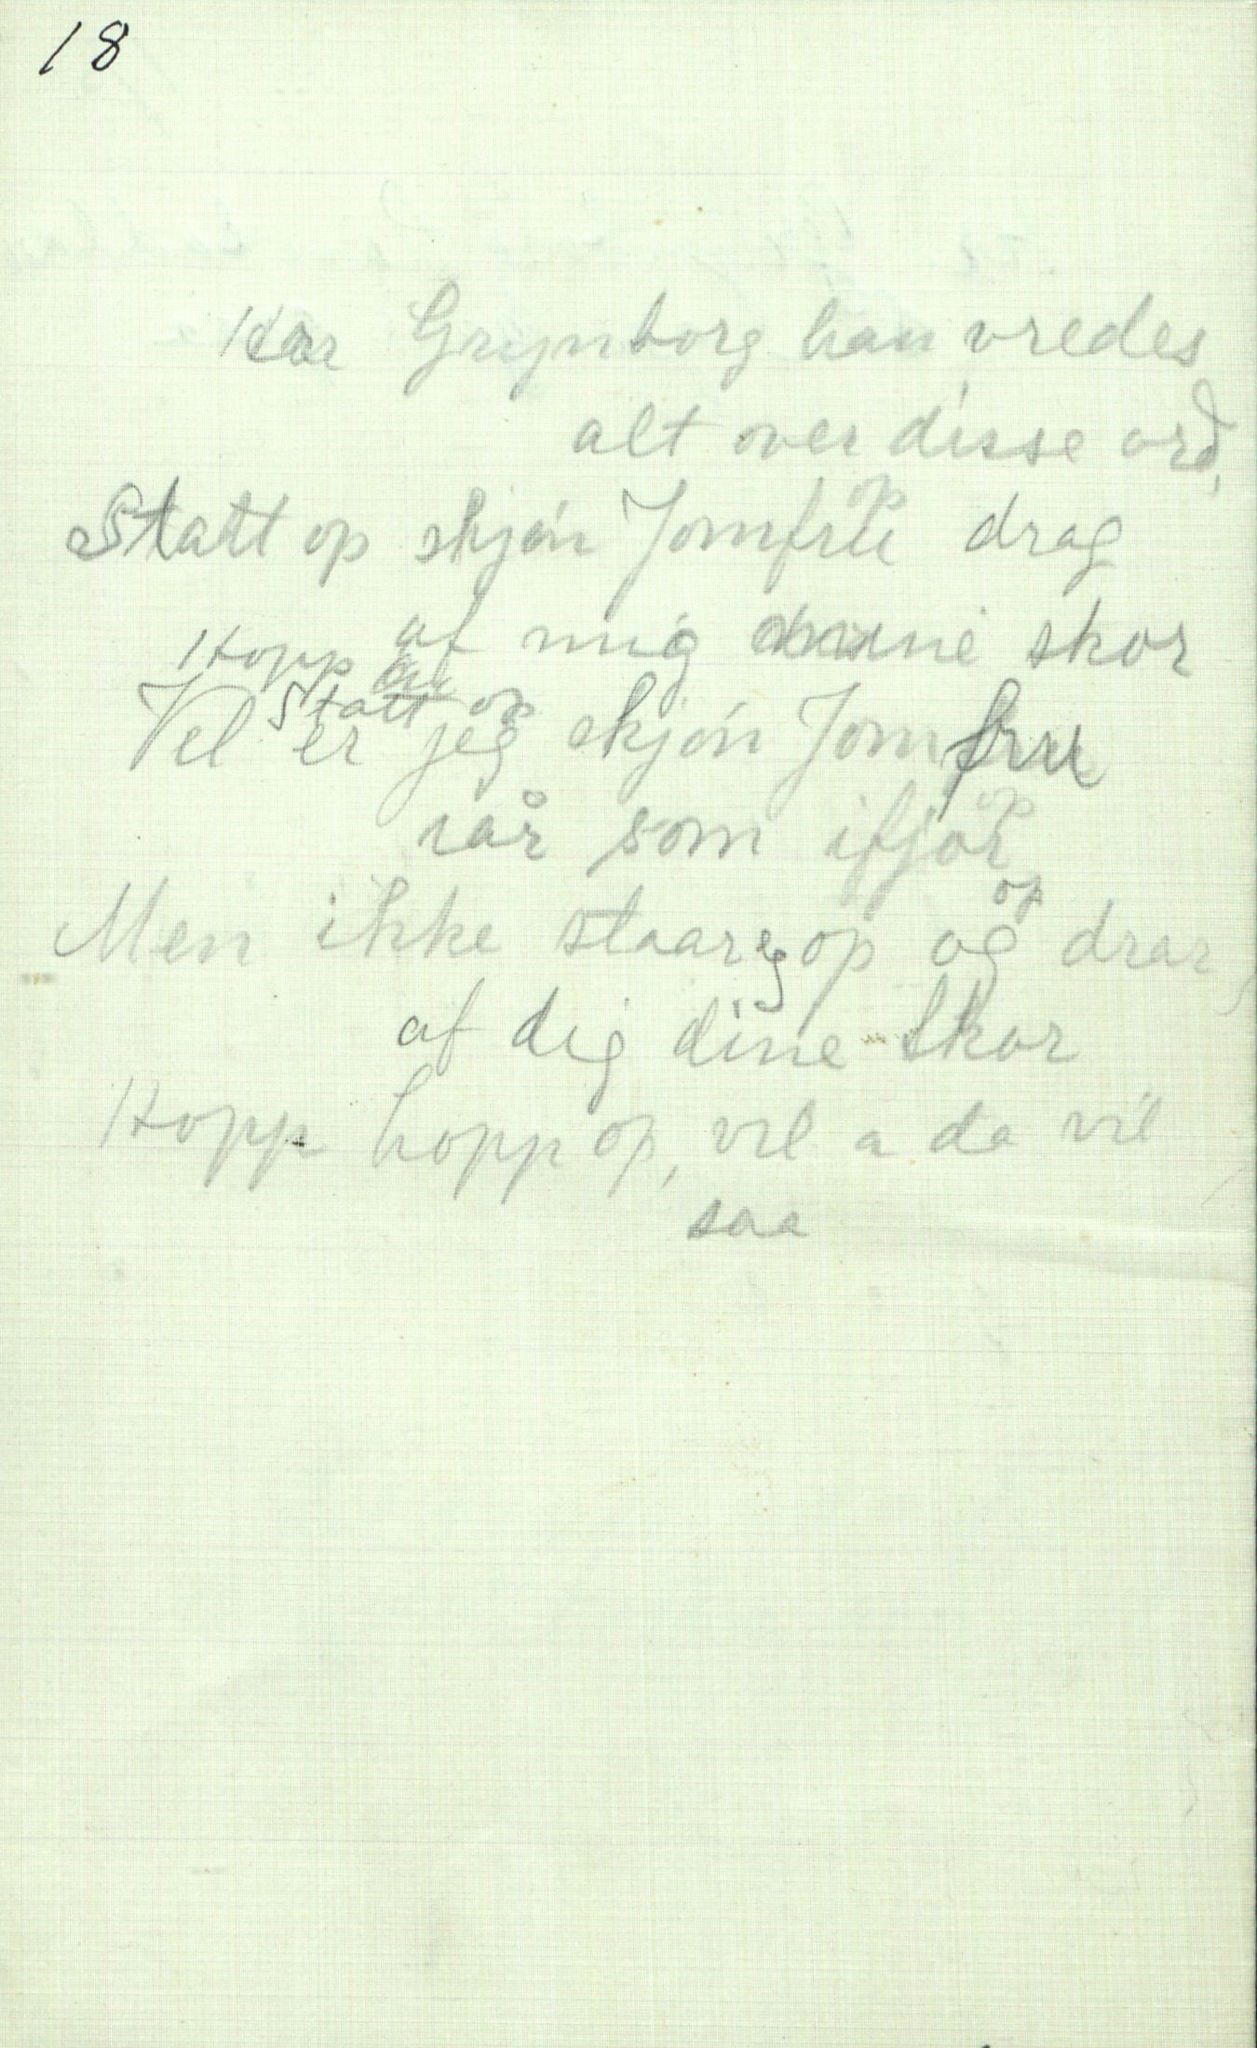 18
Har Grynborg han vredes
alt over disse ord,
op
Statt op skjøn Jomfru drag
af mig mine skor
Hopp
Statt op
Vel er jeg skjøn Jomfru
op
iår som ifjor
op
Men ikke staar eg op og drar
af dig dine skor
Hopp hopp op, vil a da vil
saa